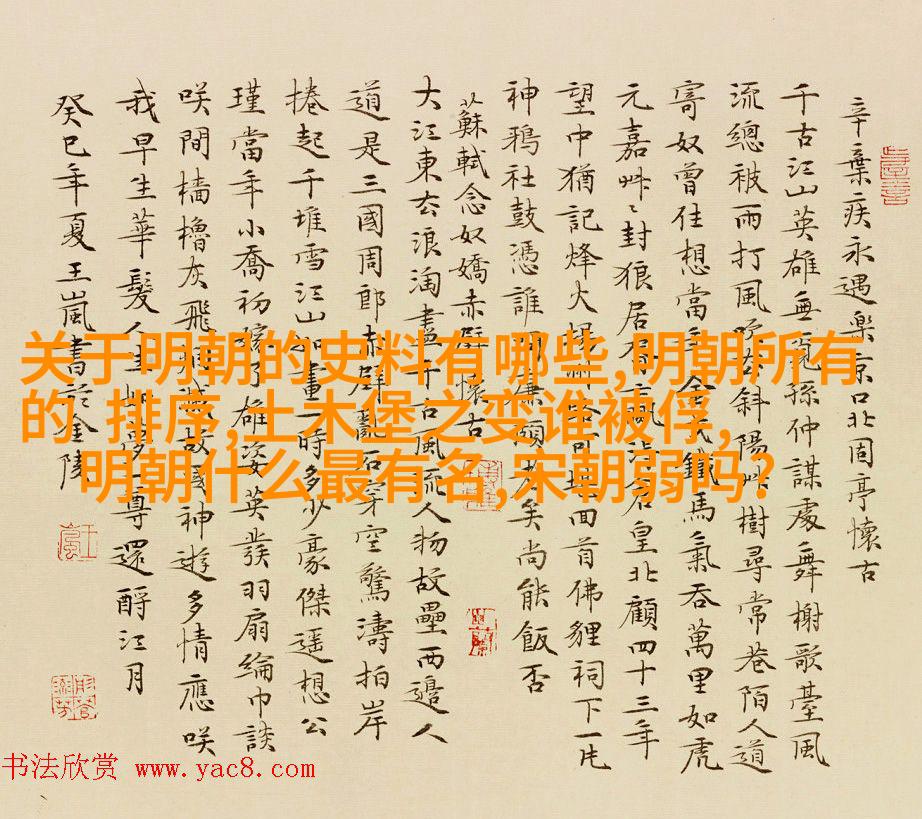 辛棄疾永遇樂京口北固亭懷古
千古江山英雄無覓孫仲謀處舞榭歌臺風
流總被雨打風吹去斜陽艸樹尋常巷陌人道
寄奴曾住想當年金戈鐵馬氣吞萬里如虎
元嘉艸〻封狼居胥贏得倉皇北顧四十三年
望中猶記烽火揚州路可堪回首佛貍祠下一片
神鴉社鼓憑誰問廉頗老矣尚能飯否
蘇軾念奴嬌赤壁懷古
大江東去浪淘盡千古風流人物故壘西邊人
道是三國周郎赤壁亂石穿空驚濤拍岸
捲起千堆雪江山如畫一時多少豪傑遥想公
瑾當年小喬初嫁了雄姿英發羽扇綸巾談
咲間檣櫓灰飛煙滅故國神遊多情應咲
我早生華髮人生如夢一尊還酹江月
癸巳年夏王嵐書於金陵
关于明朝的史料有哪些,明朝所有
的 排序,土木堡之变谁被俘,
明朝什么最有名,宋朝弱吗?
书法欣赏 www.yac8.com